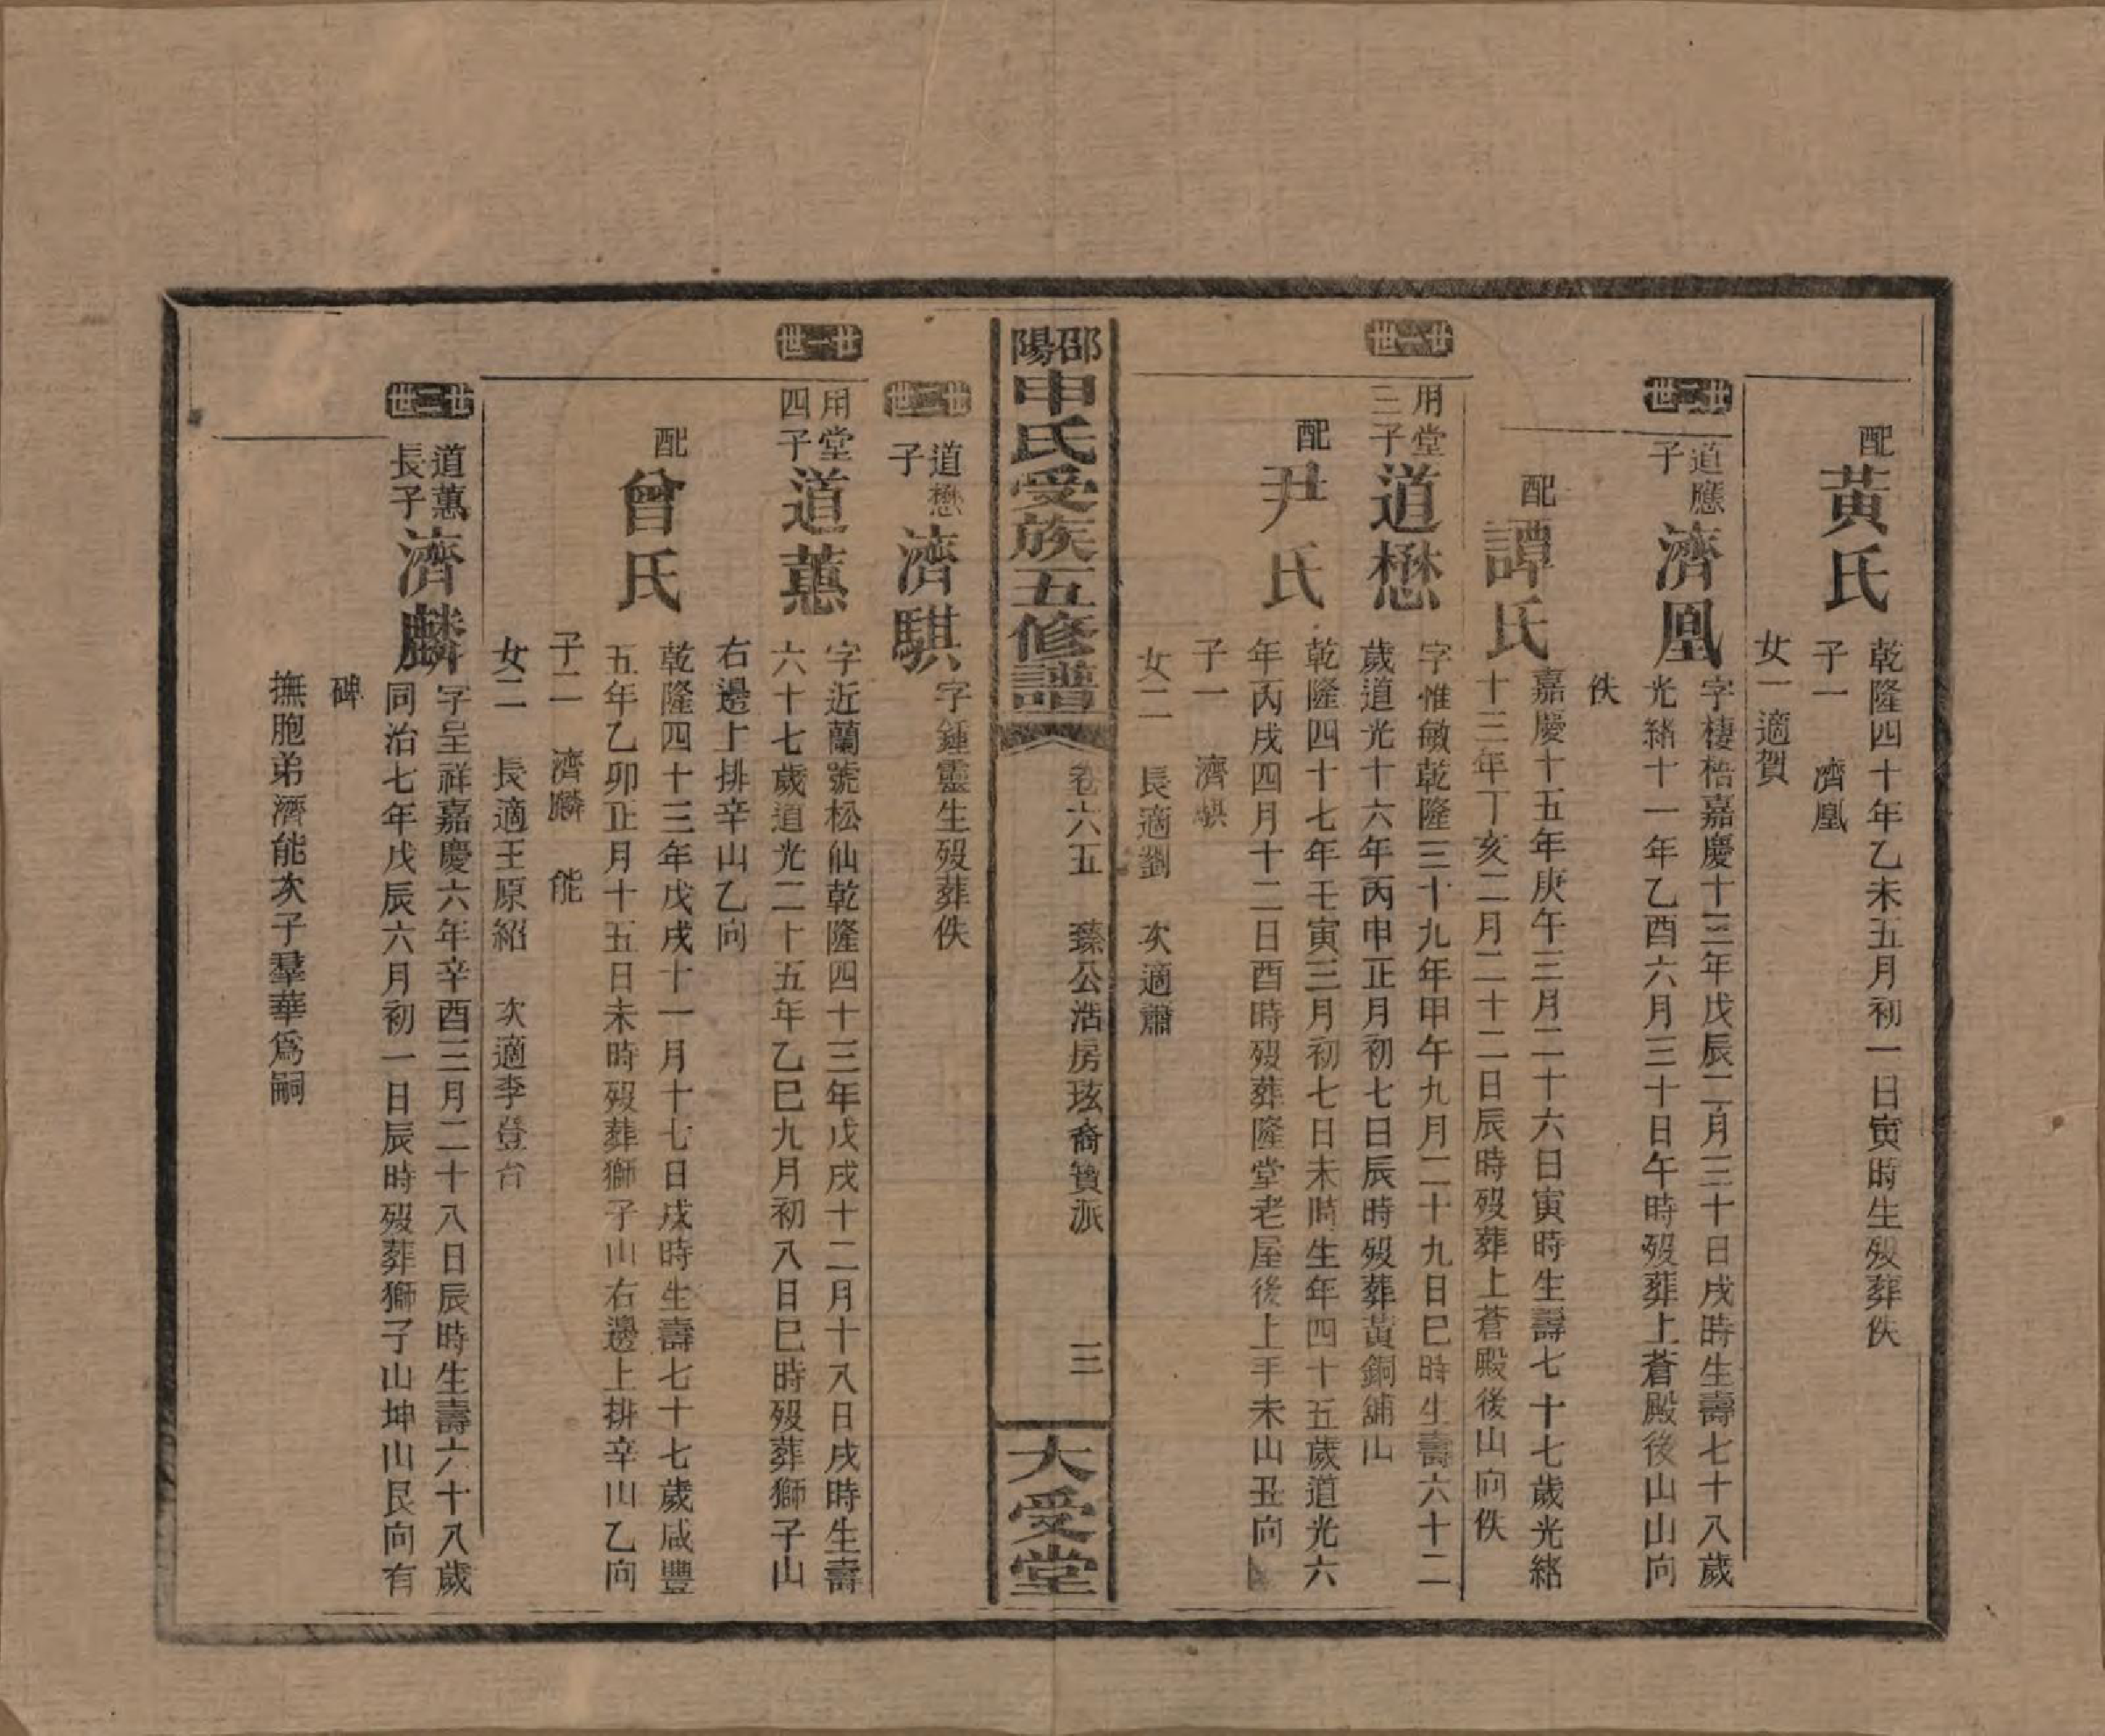 配
黃氏
乾隆四十年乙未五月初一日寅時生歿葬佚
子一　濟凰
女一適賀
世二廿
道應
子
濟凰
字棲梧嘉慶十三年戊辰二月三十日戌時生壽七十八歲
光緒十一年乙酉六月三十日午時歿葬上蒼殿後山山向
佚
配
譚氏
嘉慶十五年庚午三月二十六日寅時生壽七十七歲光緒
十三年丁亥二月二十二日辰時歿葬上蒼殿後山向佚
世一廿
用堂
三子
道懋
字惟敏乾隆三十九年甲午九月二十九日巳時生壽六十二
歲道光十六年丙申正月初七日辰時歿葬黃銅舖山
配
尹氏
乾隆四十七年壬寅三月初七日未時生年四十五歲道光六
年丙戌四月十二日酉時歿葬隆堂老屋後上手未山丑向
子一　濟騏
女二　長適劉　次適蕭
邵陽申氏受族五修譜
卷六五　臻公浩房玹裔贊派
三
大受堂
世二廿
道懋
子
濟騏
字鍾靈生歿葬佚
世一廿
用堂
四子
道蕙
字近蘭號松仙乾隆四十三年戊戌十二月十八日戌時生壽
六十七歲道光二十五年乙巳九月初八日巳時歿葬獅子山
右邊上排辛山乙向
配
曾氏
乾隆四十三年戊戌十一月十七日戌時生壽七十七歲咸豐
五年乙卯正月十五日未時歿葬獅子山右邊上排辛山乙向
子二　濟麟　能
女二　長適王原紹　次適李登台
世二廿
道蕙
長子
濟麟
字呈祥嘉慶六年辛酉三月二十八日辰時生壽六十八歲
同治七年戊辰六月初一日辰時歿葬獅子山坤山艮向有
碑
撫胞弟濟能次子羣華爲嗣